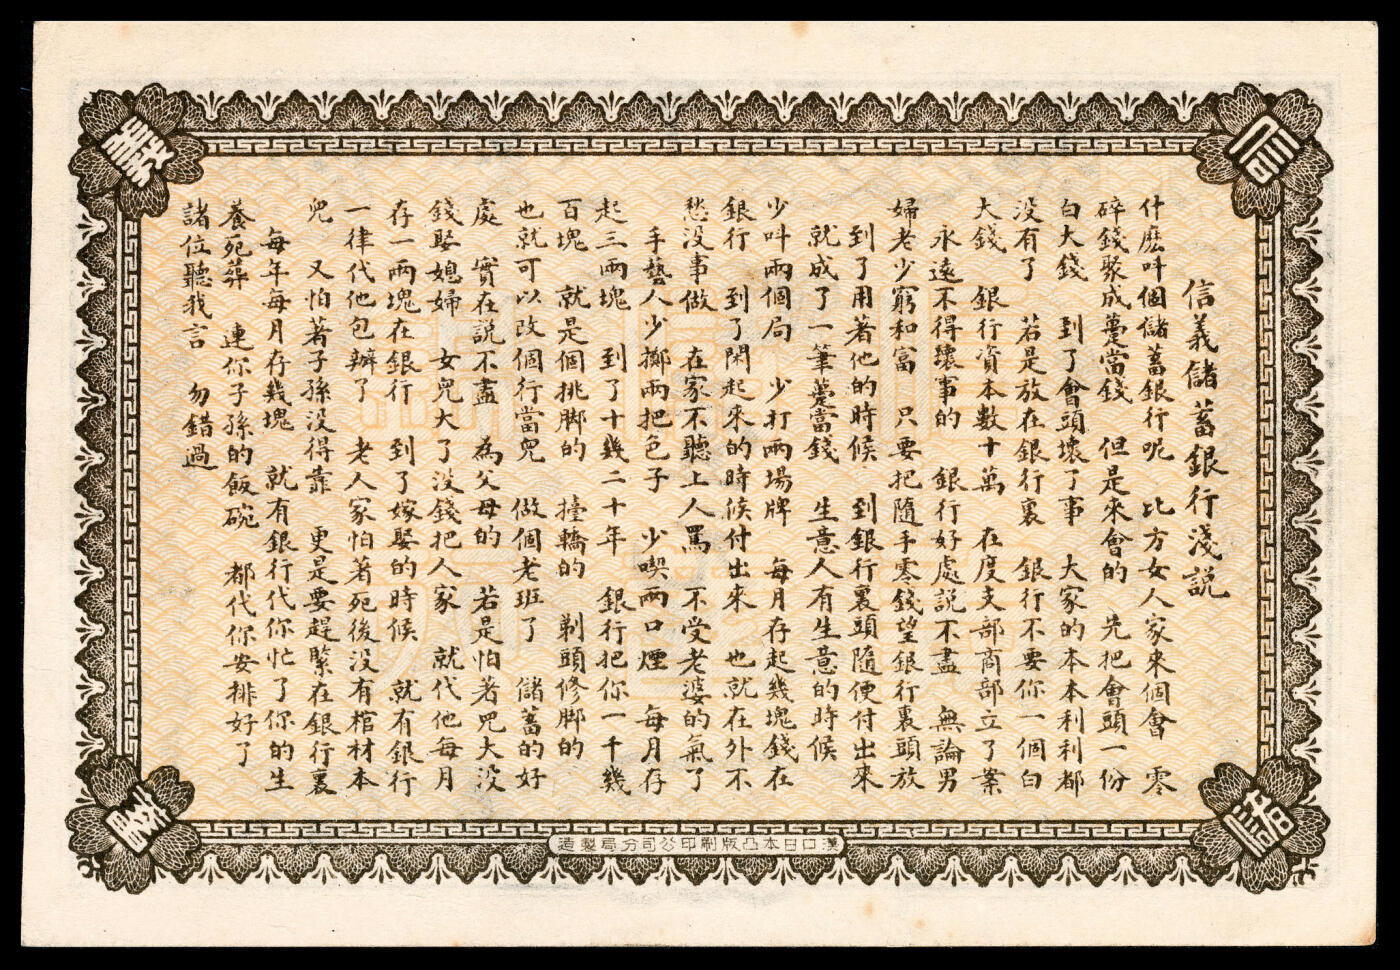 信
義
信義儲蓄銀行淺説
什麽呌個儲蓄銀行呢 比方女人家來個會 零
碎錢聚成躉當錢 但是來會的 先把會頭一份
白大錢 到了會頭壞了事 大家的本本利利都
没有了 若是放在銀行裏 銀行不要你一個白
大錢 銀行資本數十萬 在度支部商部立了案
永遠不得壞事的 銀行好處説不盡 無論男
婦老少窮和富 只要把隨手零錢望銀行裏頭放
到了用著他的時候 到銀行裏頭隨便付出來
就成了一筆躉當錢 生意人有生意的時候
少呌兩個局 少打兩場牌 每月存起幾塊錢在
銀行 到了閑起來的時候付出來 也就在外不
愁没事做 在家不聽上人罵 不受老婆的氣了
手藝人少擲兩把色子 少喫兩口煙 每月存
起三兩塊 到了十幾二十年 銀行把你一千幾
百塊 就是個挑脚的 擡轎的 剃頭修脚的
也就可以改個行當兒 做個老班了 儲蓄的好
處 實在説不盡 為父母的 若是怕著兒大没
錢娶媳婦 女兒大了没錢把人家 就代他每月
存一兩塊在銀行 到了嫁娶的時候 就有銀行
一律代他包辦了 老人家怕著死後没有棺材本
兒 又怕著子孫没得靠 更是要趕緊在銀行裏
每年每月存幾塊 就有銀行代你忙了你的生
養死葬 連你子孫的飯碗 都代你安排好了
諸位聽我言 勿錯過
儲
蓄
漢口日本凸版刷印公司分局製造